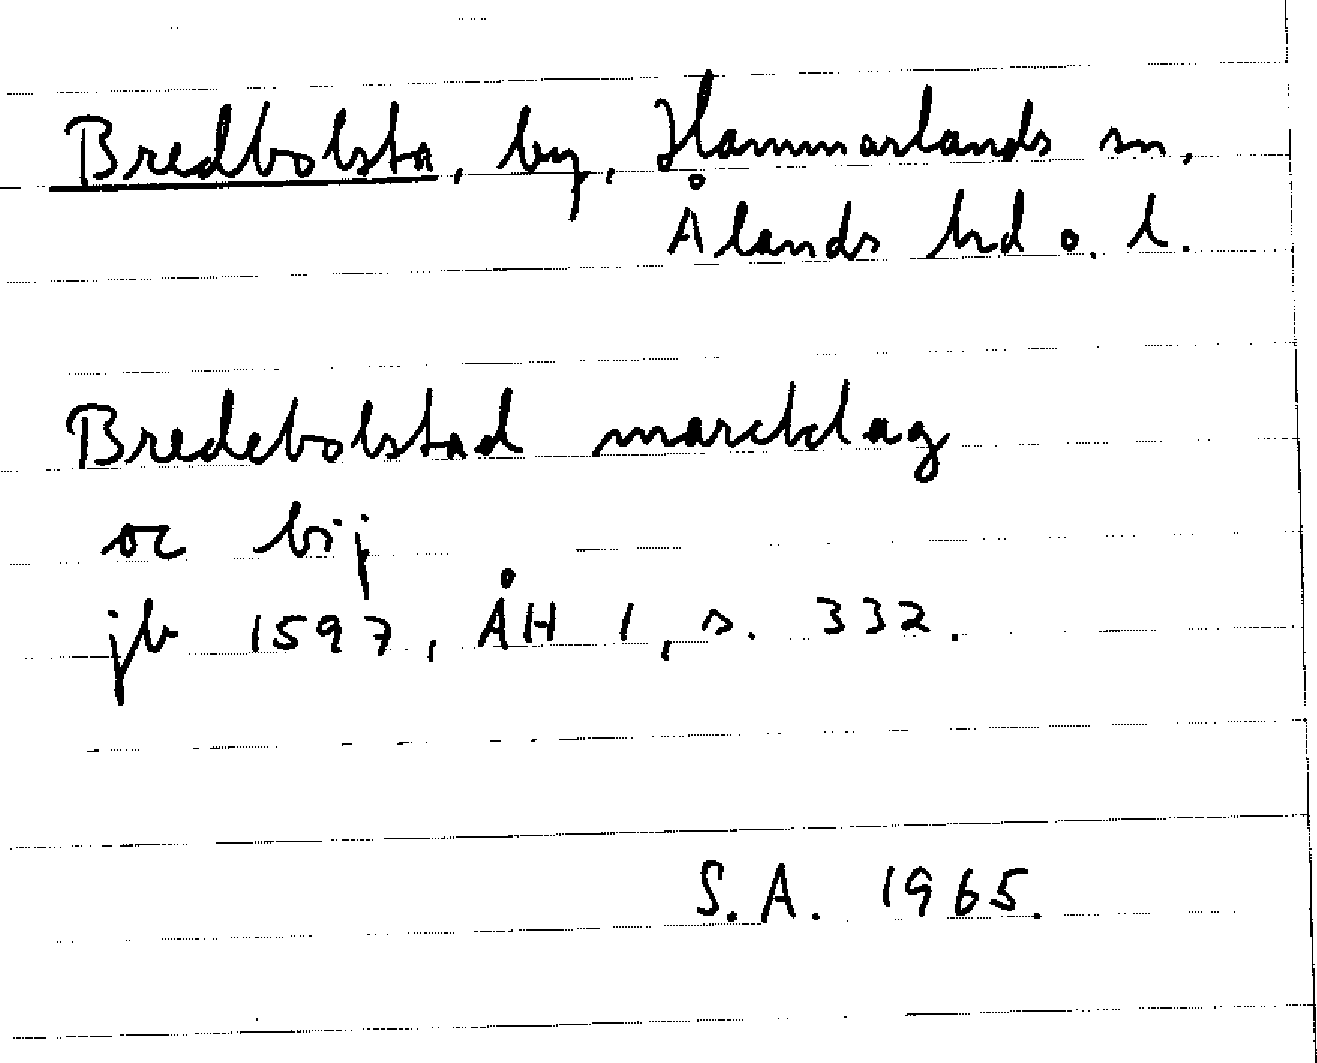 Bredbolsta, by, Hammarlands sn,
Ålands hd o. l.
Bredebolstad marcklag
oc bij
jb 1597, ÅH 1, s. 332.
S.A. 1965.